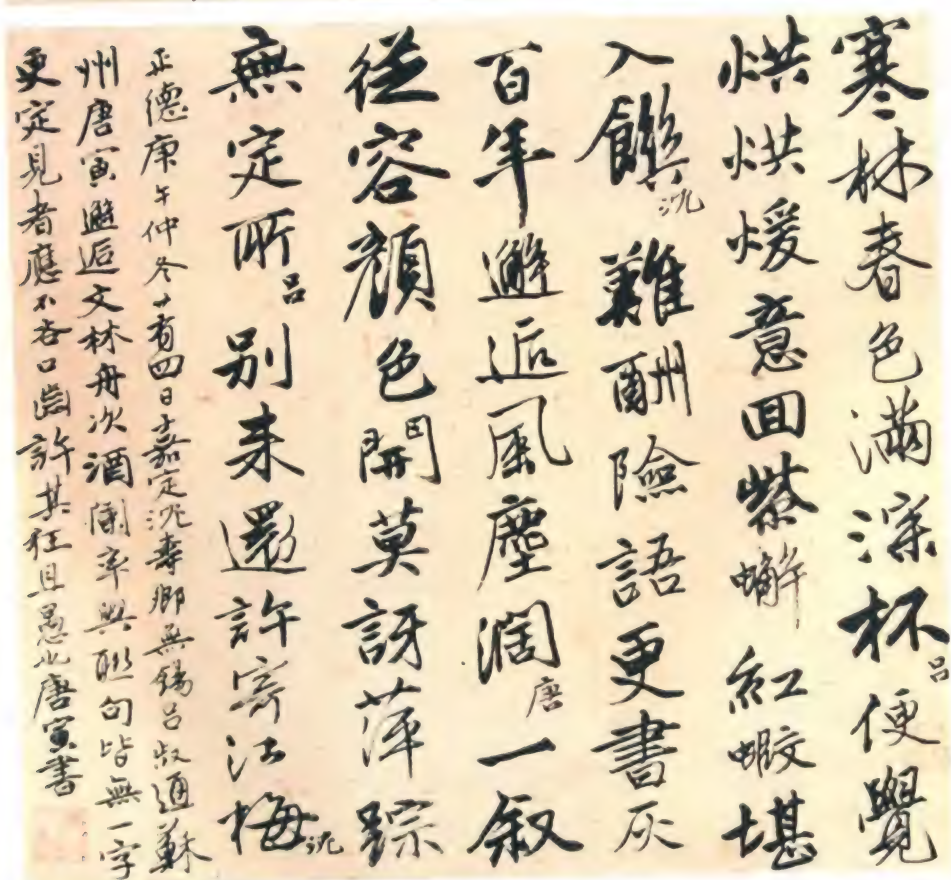 寒林春色滿深杯吕便覺
烘烘煖意囬紫蠏紅蝦堪
入饌沈難酬險語更書灰
百年邂逅風塵濶唐一叙
從容顔色開莫訝萍踪
無定所吕別来還許寄江梅沈
正德庚午仲冬廿有四日嘉定沈壽卿無錫吕叔通蘇
州唐寅邂逅文林舟次酒闌率興聯句皆無一字
更定見者應不吝口齒許其狂且愚也唐寅書